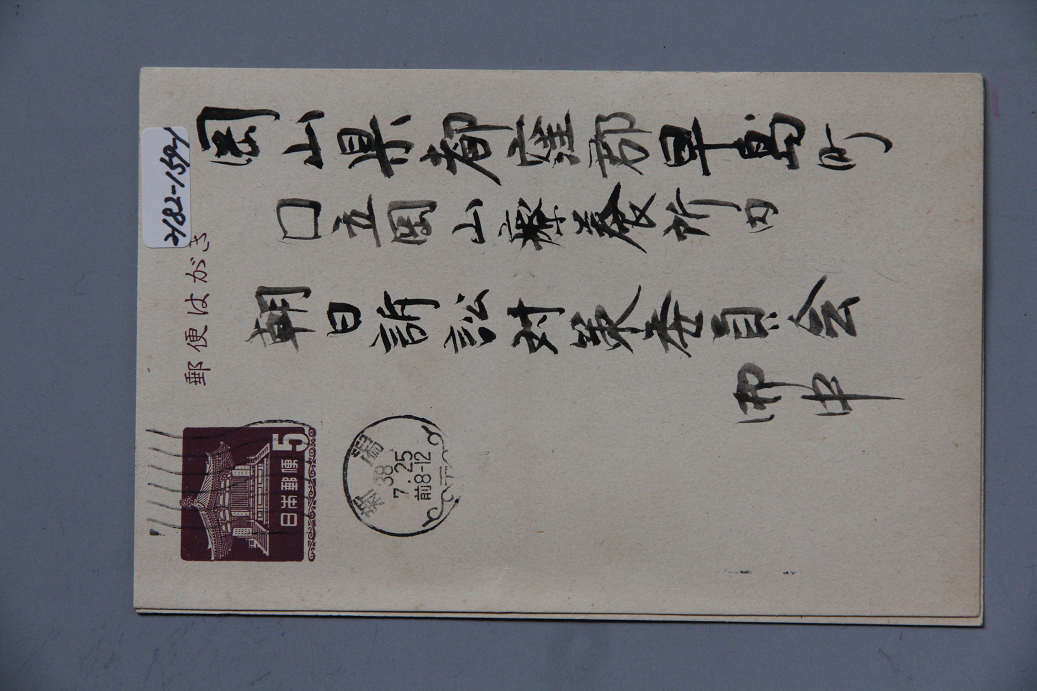 岡山県都窪郡早島町
国立岡山療養所内
朝日訴訟対策委員会
御中
2182-159-1
郵便はがき
5
日本郵便
新潟
38
7.25
前8-12